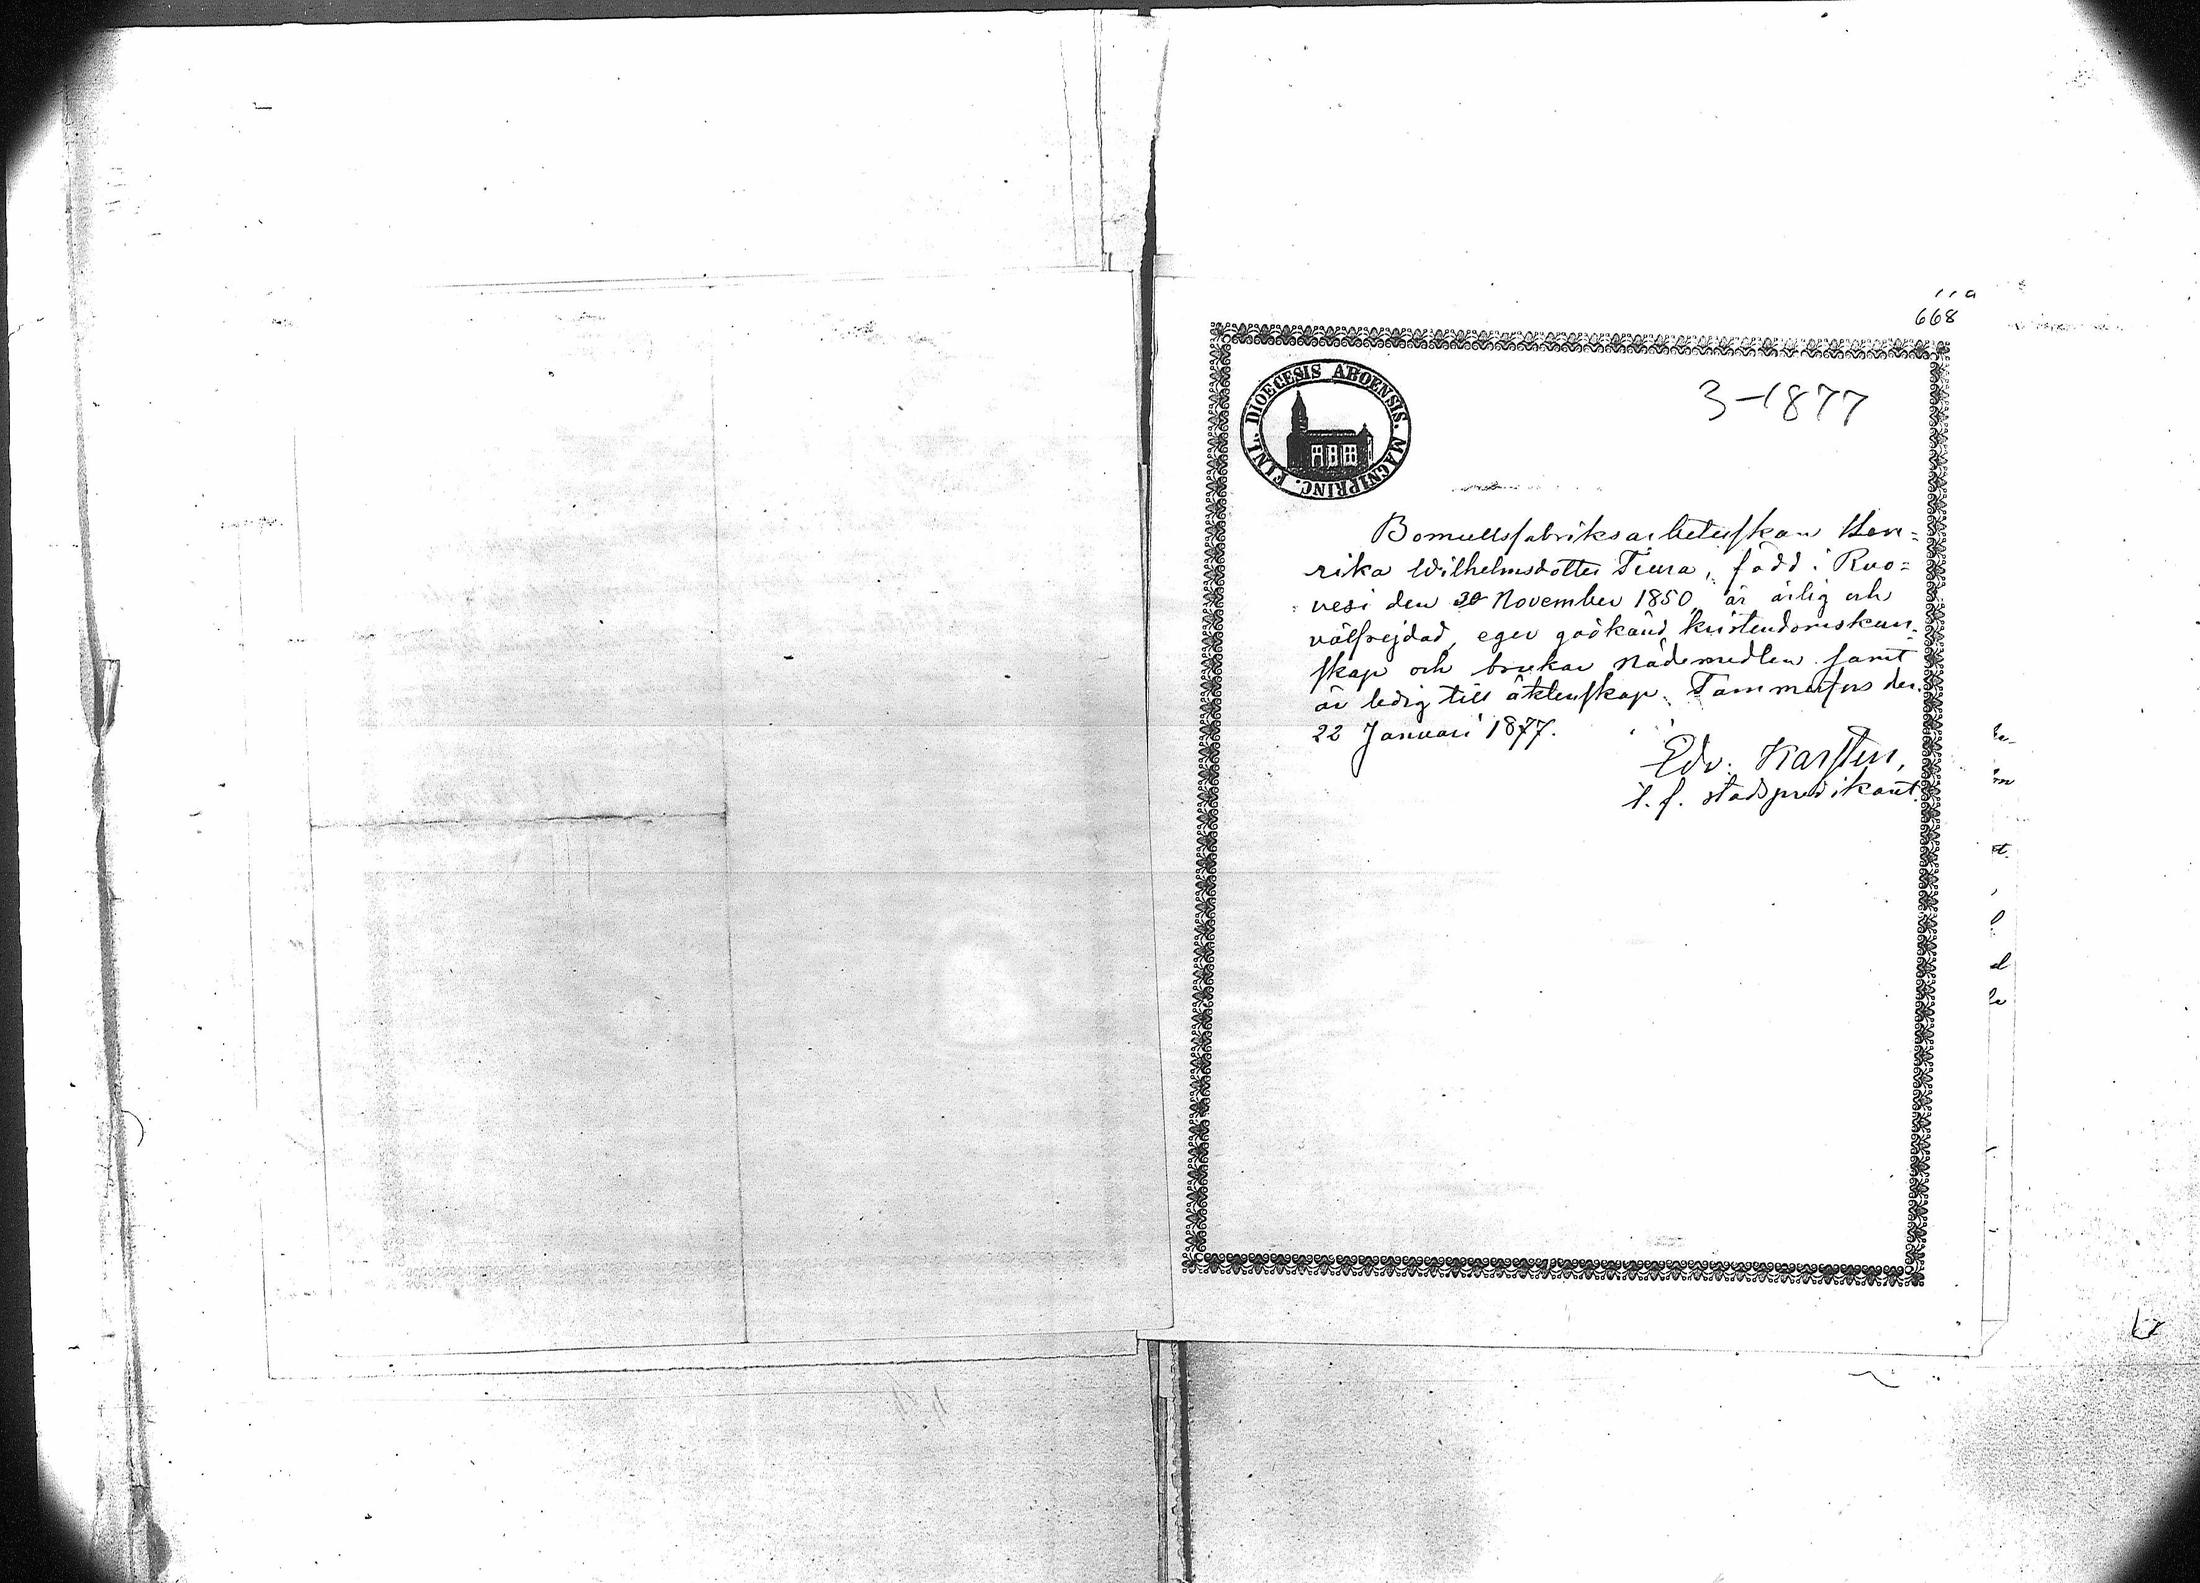 668
DIOECESIS ABOENSIS. MAGNI PRINC. FINL.
3-1877
Bomullsfabriksarbeterskan Hen=
rika Wilhelmsdotter Tiura, född i Ruo=
vesi den 30 November 1850, är ärlig och
välfrejdad, eger godkänd kristendomskun-
skap och brukar nådemedlen samt
är ledig till äktenskap. Tammerfors den
22 Januari 1877.
Edv. Karsten,
t. f. stadspredikant.